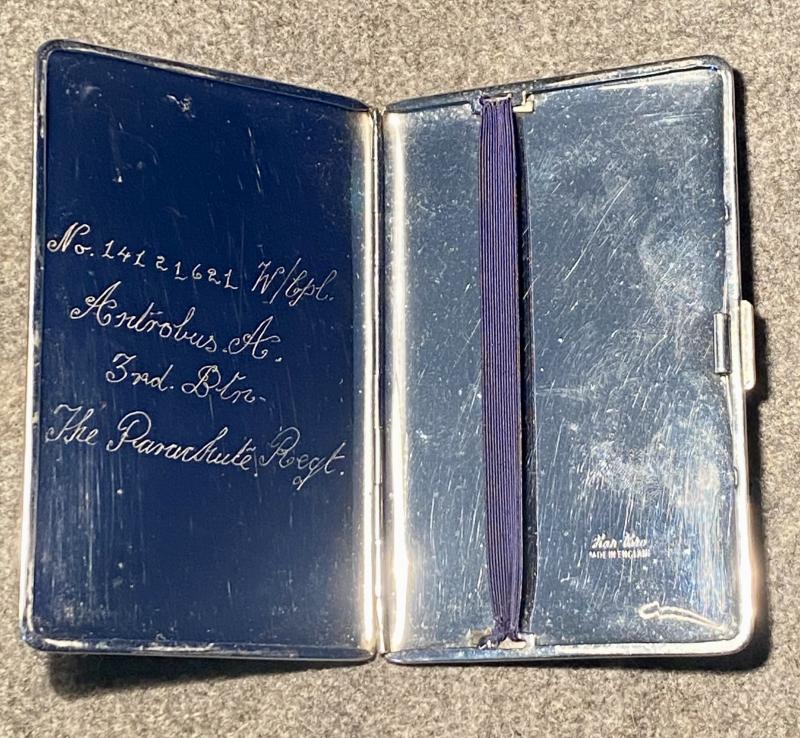 No. 14121621 W/Cpl.
Antrobus. A.
3rd. Btn.
The Parachute Regt.
MADE IN ENGLAND